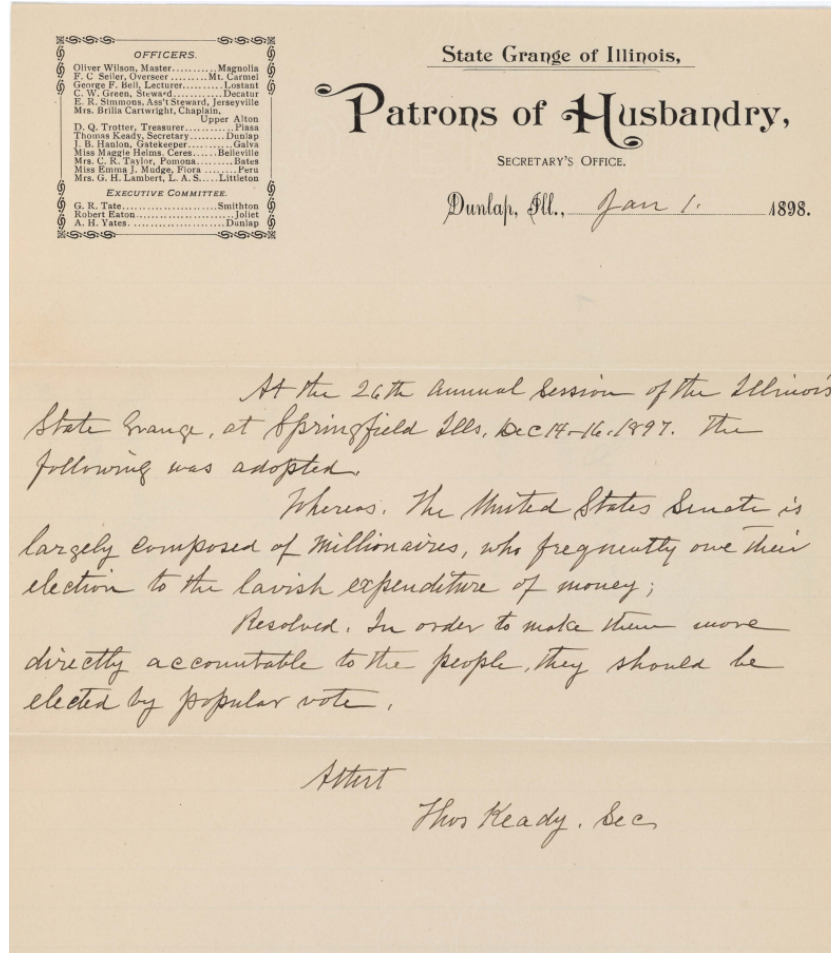 OFFICERS.
Oliver Wilson, Master..........Magnolia
F. C Seiler, Overseer........Mt. Carmel
George F. Bell, Lecturer..........Lostant
C. W. Green, Steward............Decatur
E. R. Simmons, Ass't Steward, Jerseyville
Mrs. Brilla Cartwright, Chaplain,
Upper Alton
D. Q. Trotter, Treasurer............Piasa
Thomas Keady, Secretary.....Dunlap
J. B. Hanlon, Gatekeeper.......Galva
Miss Maggie Helms, Ceres.....Belleville
Mrs. C. R. Taylor, Pomona.......Bates
Miss Emma J. Mudge, Flora.......Peru
Mrs. G. H. Lambert, L. A. S.....Littleton
EXECUTIVE COMMITTEE.
G. R. Tate.....................Smithton
Robert Eaton.....................Joliet
A. H. Yates......................Dunlap
State Grange of Illinois,
Patrons of Husbandry,
SECRETARY'S OFFICE.
Dunlap, Ill., Jan 1. 1898.
At the 26th Annual Session of the Illinois
State Grange, at Springfield Ills, Dec 14-16-1897. The
following was adopted.
Whereas. The United States Senate is
largely composed of Millionaires, who frequently owe their
election to the lavish expenditure of money;
Resolved. In order to make them more
directly accountable to the people, they should be
elected by popular vote.
Attest
Thos Keady. Sec